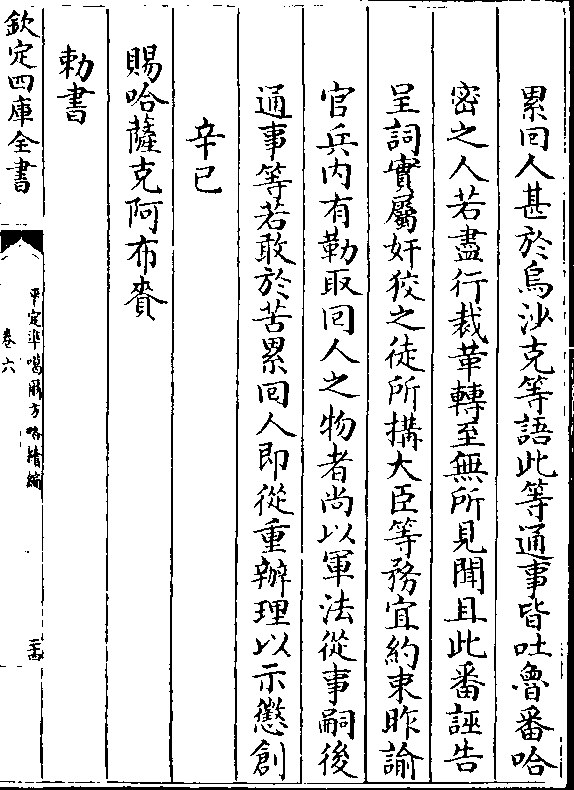 累回人甚於烏沙克等語此等通事皆吐魯番哈
密之人若盡行裁革轉至無所見聞且此番誣告
呈詞實屬奸狡之徒所搆大臣等務宜約束昨諭
官兵內有勒取回人之物者尚以軍法從事嗣後
通事等若敢於苦累回人即從重辦理以示懲創
辛巳
賜哈薩克阿布賚
勅書
欽定四庫全書
平定準噶爾方略續編
卷六
二十四